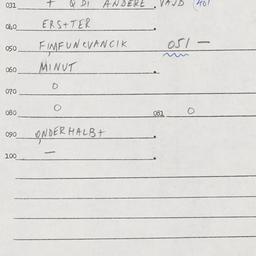 031 + Q DI ANDERE . VAJB (401
040 ERS+TER
050 FIMFUNCVANCIK 051 —
060 MINUT
070 O
080 O 081 O
090 ONDERHALB+
100 —